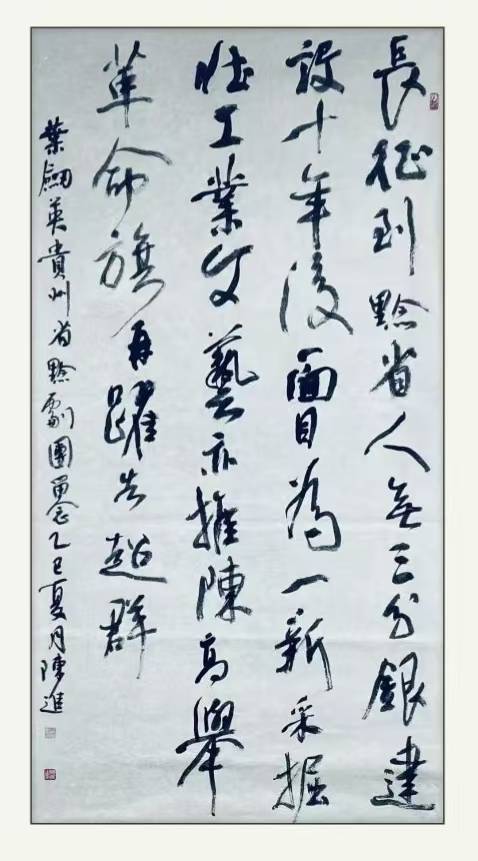 長征到黔省人無三分銀建
設十年後面目為一新采掘
壯工業文藝亦推陳高舉
革命旗再躍告超群
葉劍英貴州省黔劇團留念乙巳夏月陳進